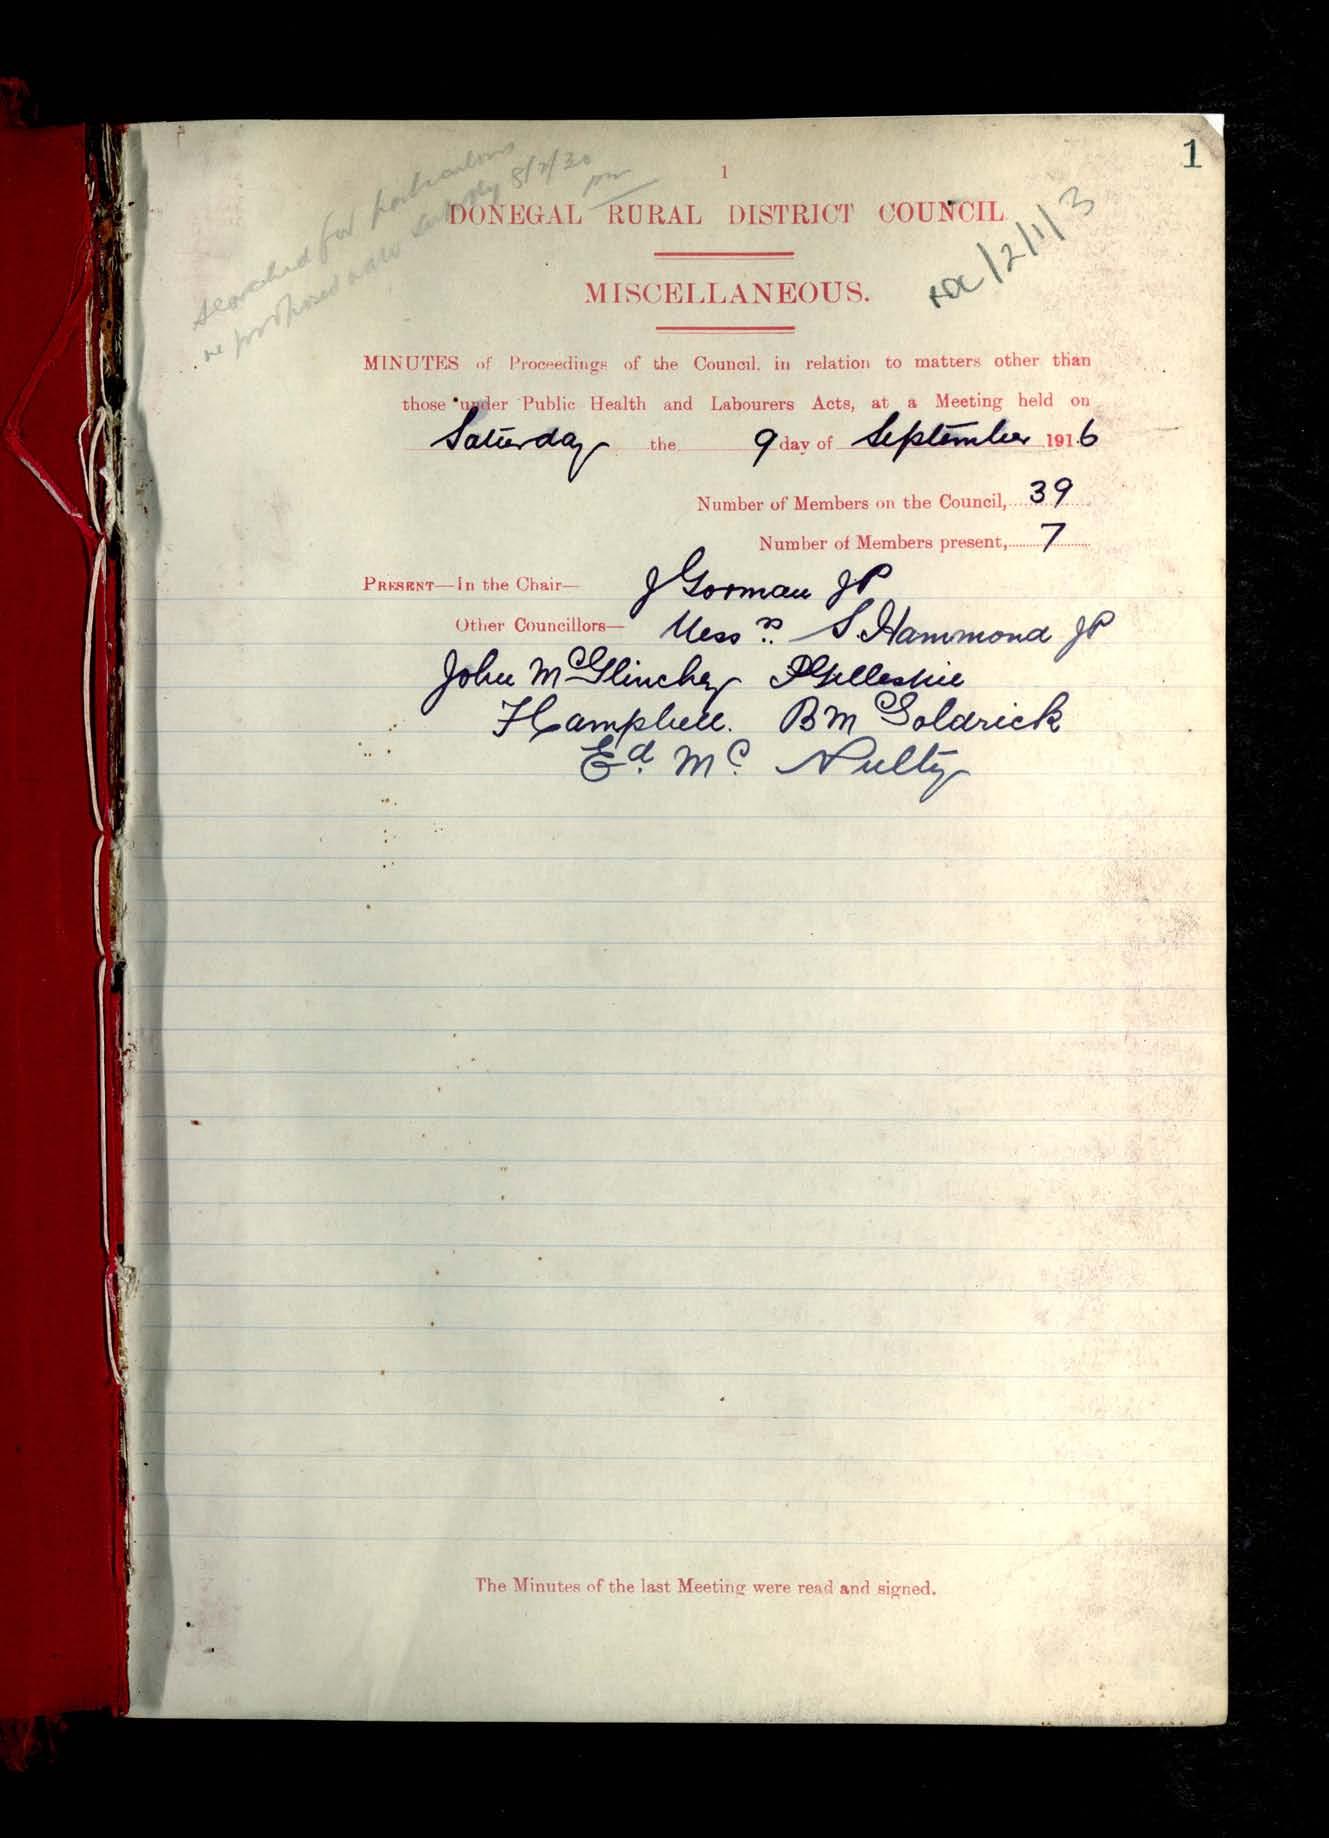 1
1
searched for particulars
re proposed water supply 8/7/30
DONEGAL RURAL DISTRICT COUNCIL
RDC/2/1/3
MISCELLANEOUS.
MINUTES of Proceedings of the Council, in relation to matters other than
those under Public Health and Labourers Acts, at a Meeting held on
Saturday the 9 day of September 1916
Number of Members on the Council, 39
Number of Members present, 7
PRESENT—In the Chair— J Gorman JP
Other Councillors— Messrs S. Hammond JP
John McGlinchey P Gilleskie
F Campbell. B McGoldrick
Ed. Mc Nulty
The Minutes of the last Meeting were read and signed.